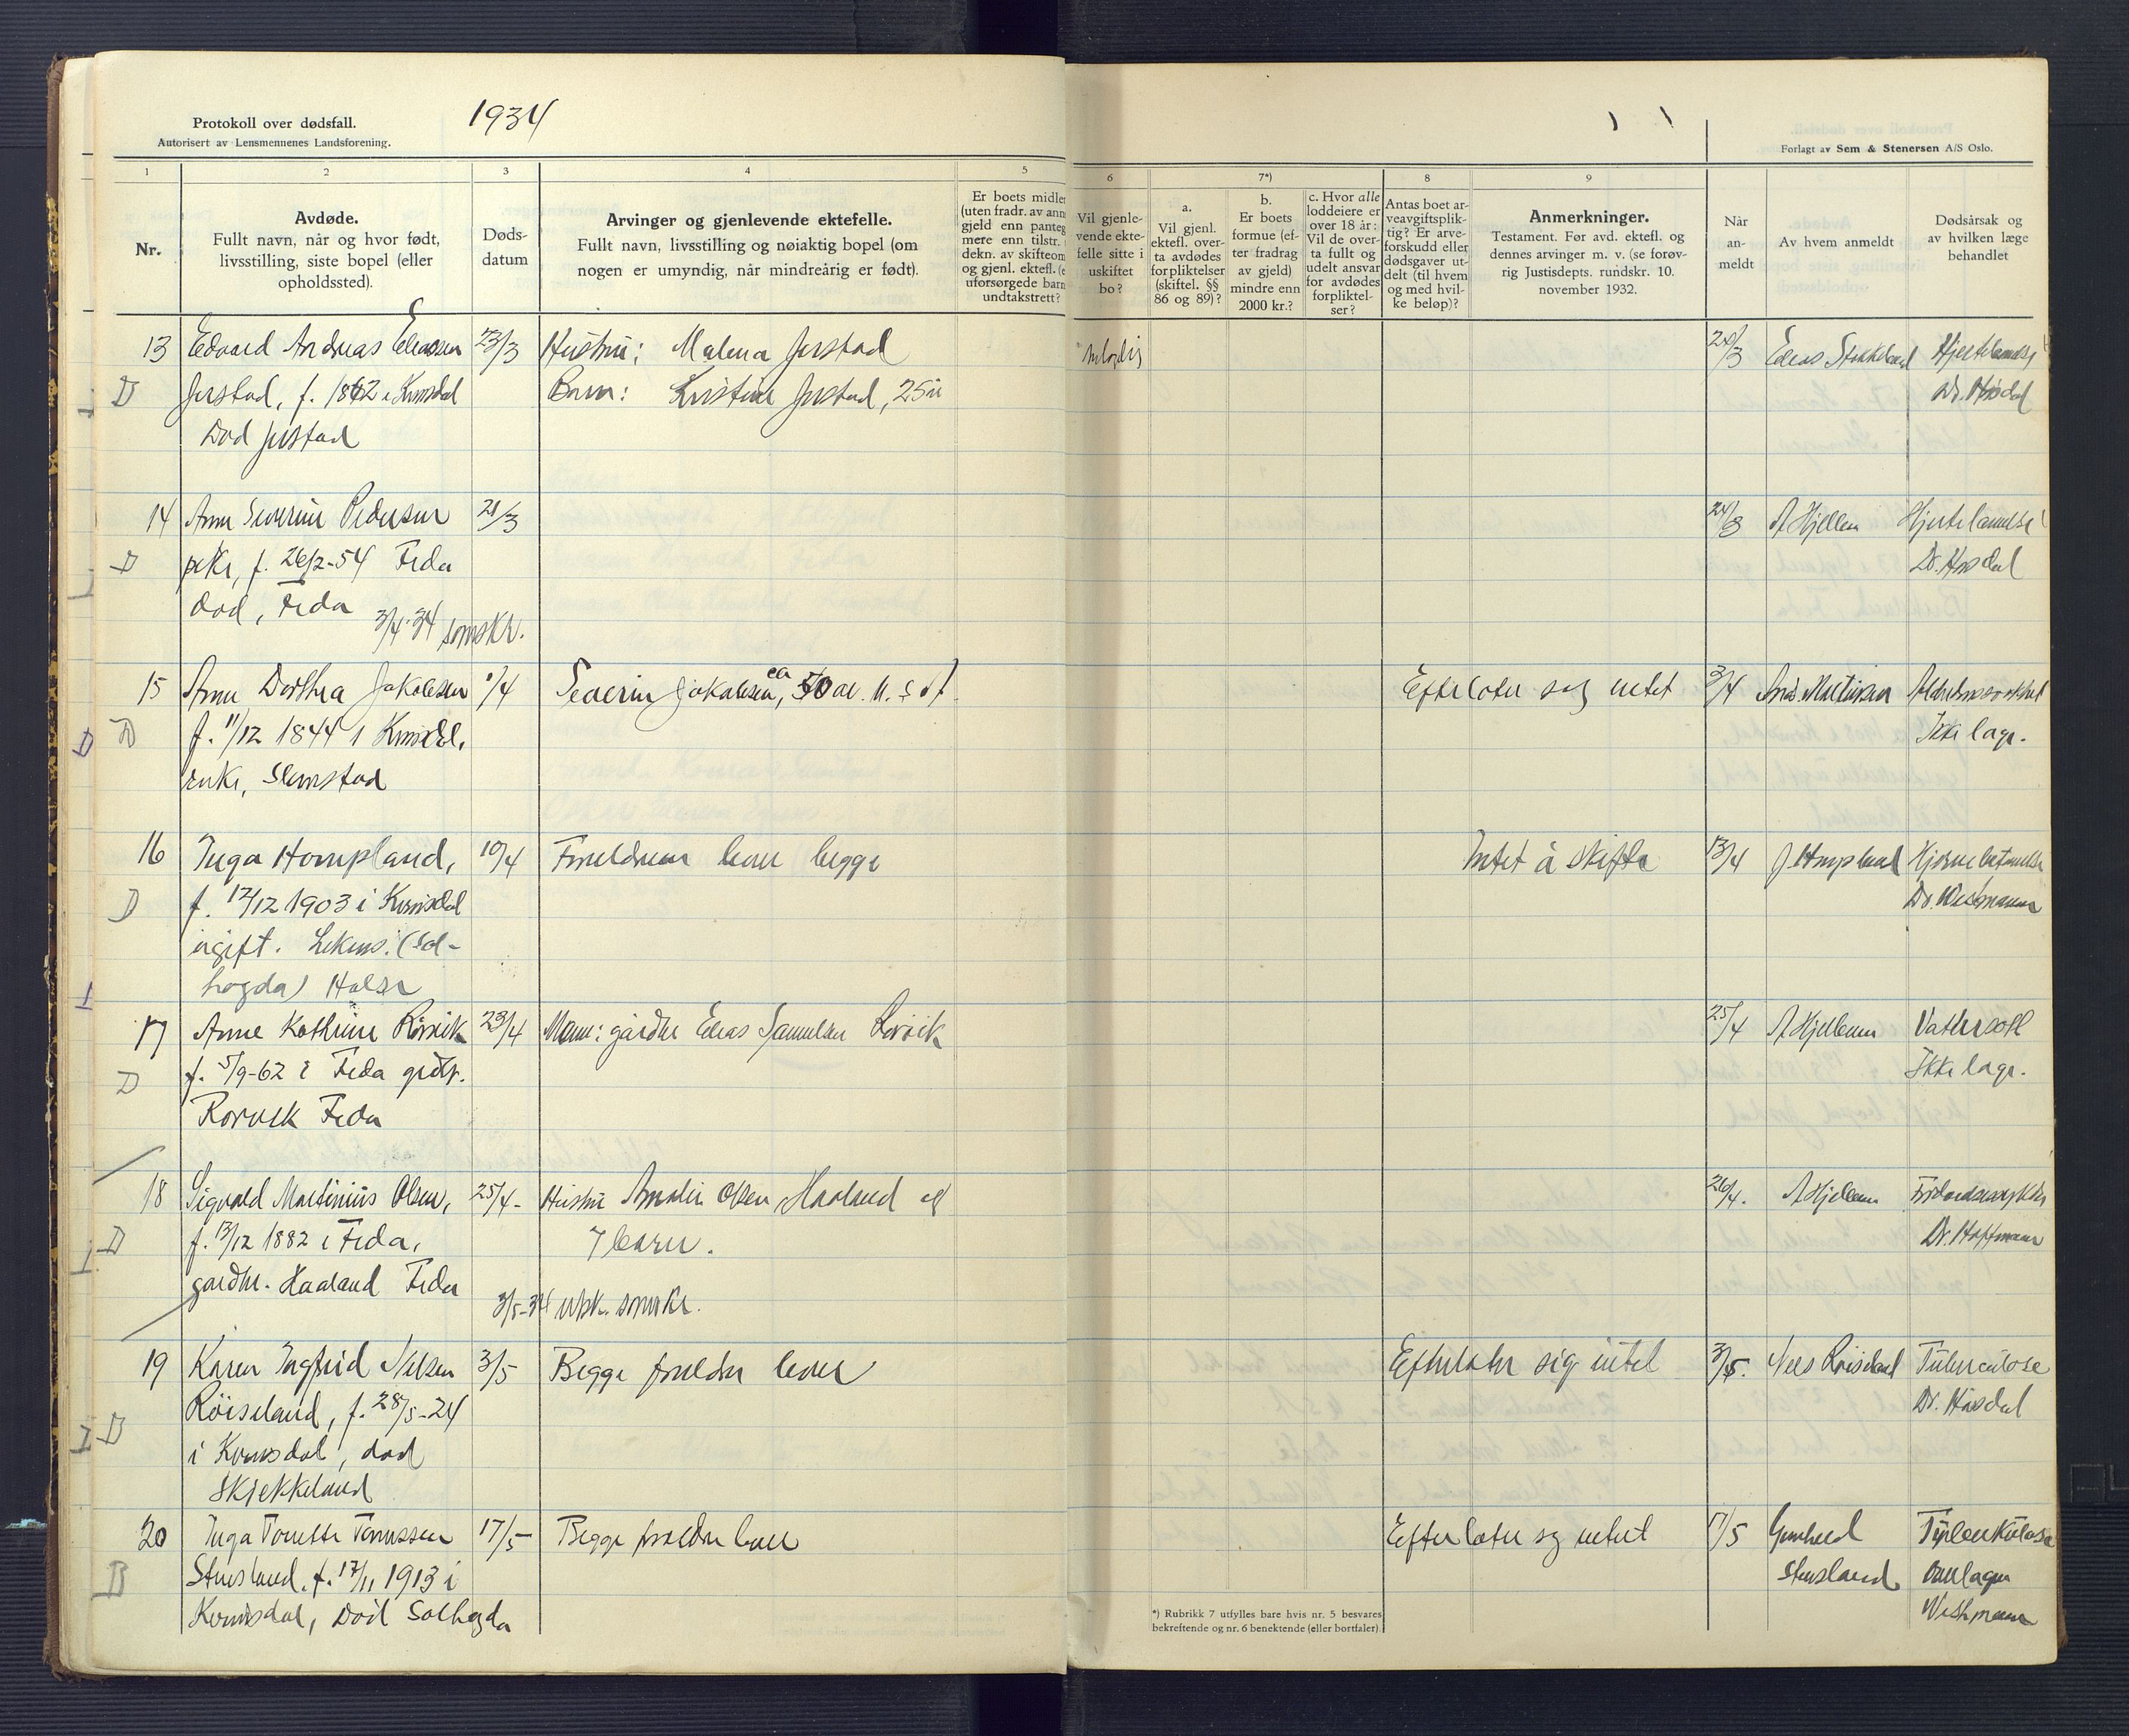 Protokoll over dødsfall.
Autorisert av Lensmennenes Landsforening.
1934
Forlagt av Sem & Stenersen A/S Oslo.
1 2 3 4 5 6 7*) 8 9
Nr.
Avdøde.
Fullt navn, når og hvor født,
livsstilling, siste bopel (eller
opholdssted).
Døds-
datum
Arvinger og gjenlevende ektefelle.
Fullt navn, livsstilling og nøiaktig bopel (om
nogen er umyndig, når mindreårig er født).
Er boets midler
(uten fradr. av ann
gjeld enn panteg
mere enn tilstr.
dekn. av skifteom
og gjenl. ektef. (e
uforsørgede barn
undtakstrett?
Vil gjenle-
vende ekte-
felle sitte i
uskiftet
bo?
a.
Vil gjenl.
ektefl. over-
ta avdødes
forpliktelser
(skiftel. §§
86 og 89)?
b.
Er boets
formue (ef-
ter fradrag
av gjeld)
mindre enn
2000 kr.?
c. Hvor alle
loddeiere er
over 18 år:
Vil de over-
ta fullt og
udelt ansvar
for avdødes
forpliktel-
ser?
Antas boet ar-
veavgiftsplik-
tig? Er arve-
forskudd eller
dødsgaver ut-
delt (til hvem
og med hvil-
ke beløp)?
Anmerkninger.
Testament. Før avd. ektefl. og
dennes arvinger m. v. (se forøv-
rig Justisdepts. rundskr. 10.
november 1932.
Når
an-
meldt
Av hvem anmeldt
Dødsårsak og
av hvilken læge
behandlet
13 Edvard Andreas Eliassen 23/3 Hustru: Malena Jerstad
D Jerstad, f. 1862 i Kvinesdal Barn: Kristine Jerstad, 25 år
Død Jerstad
Elias Stokkeland Hjertelammelse
Dr. Høsdal
14 Anne Severine Pedersen 21/3
D pike, f. 26/2-54 Feda
død, Feda 3/4-34
24/3 A Hjellem Hjertelammelse
Dr. Høsdal
15 Anne Dorthea Jakobsen 1/4 Severin Jakobsen, ca 50 år
D f. 11/12 1844 i Kvinesdal,
enke,
Efterlater sig intet 3/4
Ikke læge.
16 Inga Hompland, 10/4 Foreldrene lever begge
D f. 17/12 1903 i Kvinesdal
ugift.
høgda) Halse
Intet å skifte 13/4 J Hompland
17 Anne Kathrine Rörvik 23/4 Mann: gårdbr Elias Samuelsen Rørvik
D f. 5/9-62 i Feda
Rørvik Feda
25/4 A Hjellem Vattersott
Ikke læge.
18 Sigvald Martinius Olsen, 25/4- Hustru Amalie Olsen Haaland og
D f. 13/12 1882 i Feda, 7 barn.
gårdbr. Haaland Feda
3/5-34
26/4. A Hjellem
Dr. Hoffmann
19 Karen Ingfrid Nilsen 3/5 Begge foreldre lever
D Röiseland, f. 28/5-24
i Kvinesdal, død
Efterlater sig intet 3/5. Nils Röiseland Tuberculose
Dr. Høsdal
20 Inga Tonette Tønnessen 17/5- Begge foreldre lever
D Stensland, f. 17/11 1913 i
Kvinesdal, Død Solhøgda
Efterlater sig intet 17/5 Gunhild
Stensland
Tuberkulose
*) Rubrikk 7 utfylles bare hvis nr. 5 besvares
bekreftende og nr. 6 benektende (eller bortfaler)